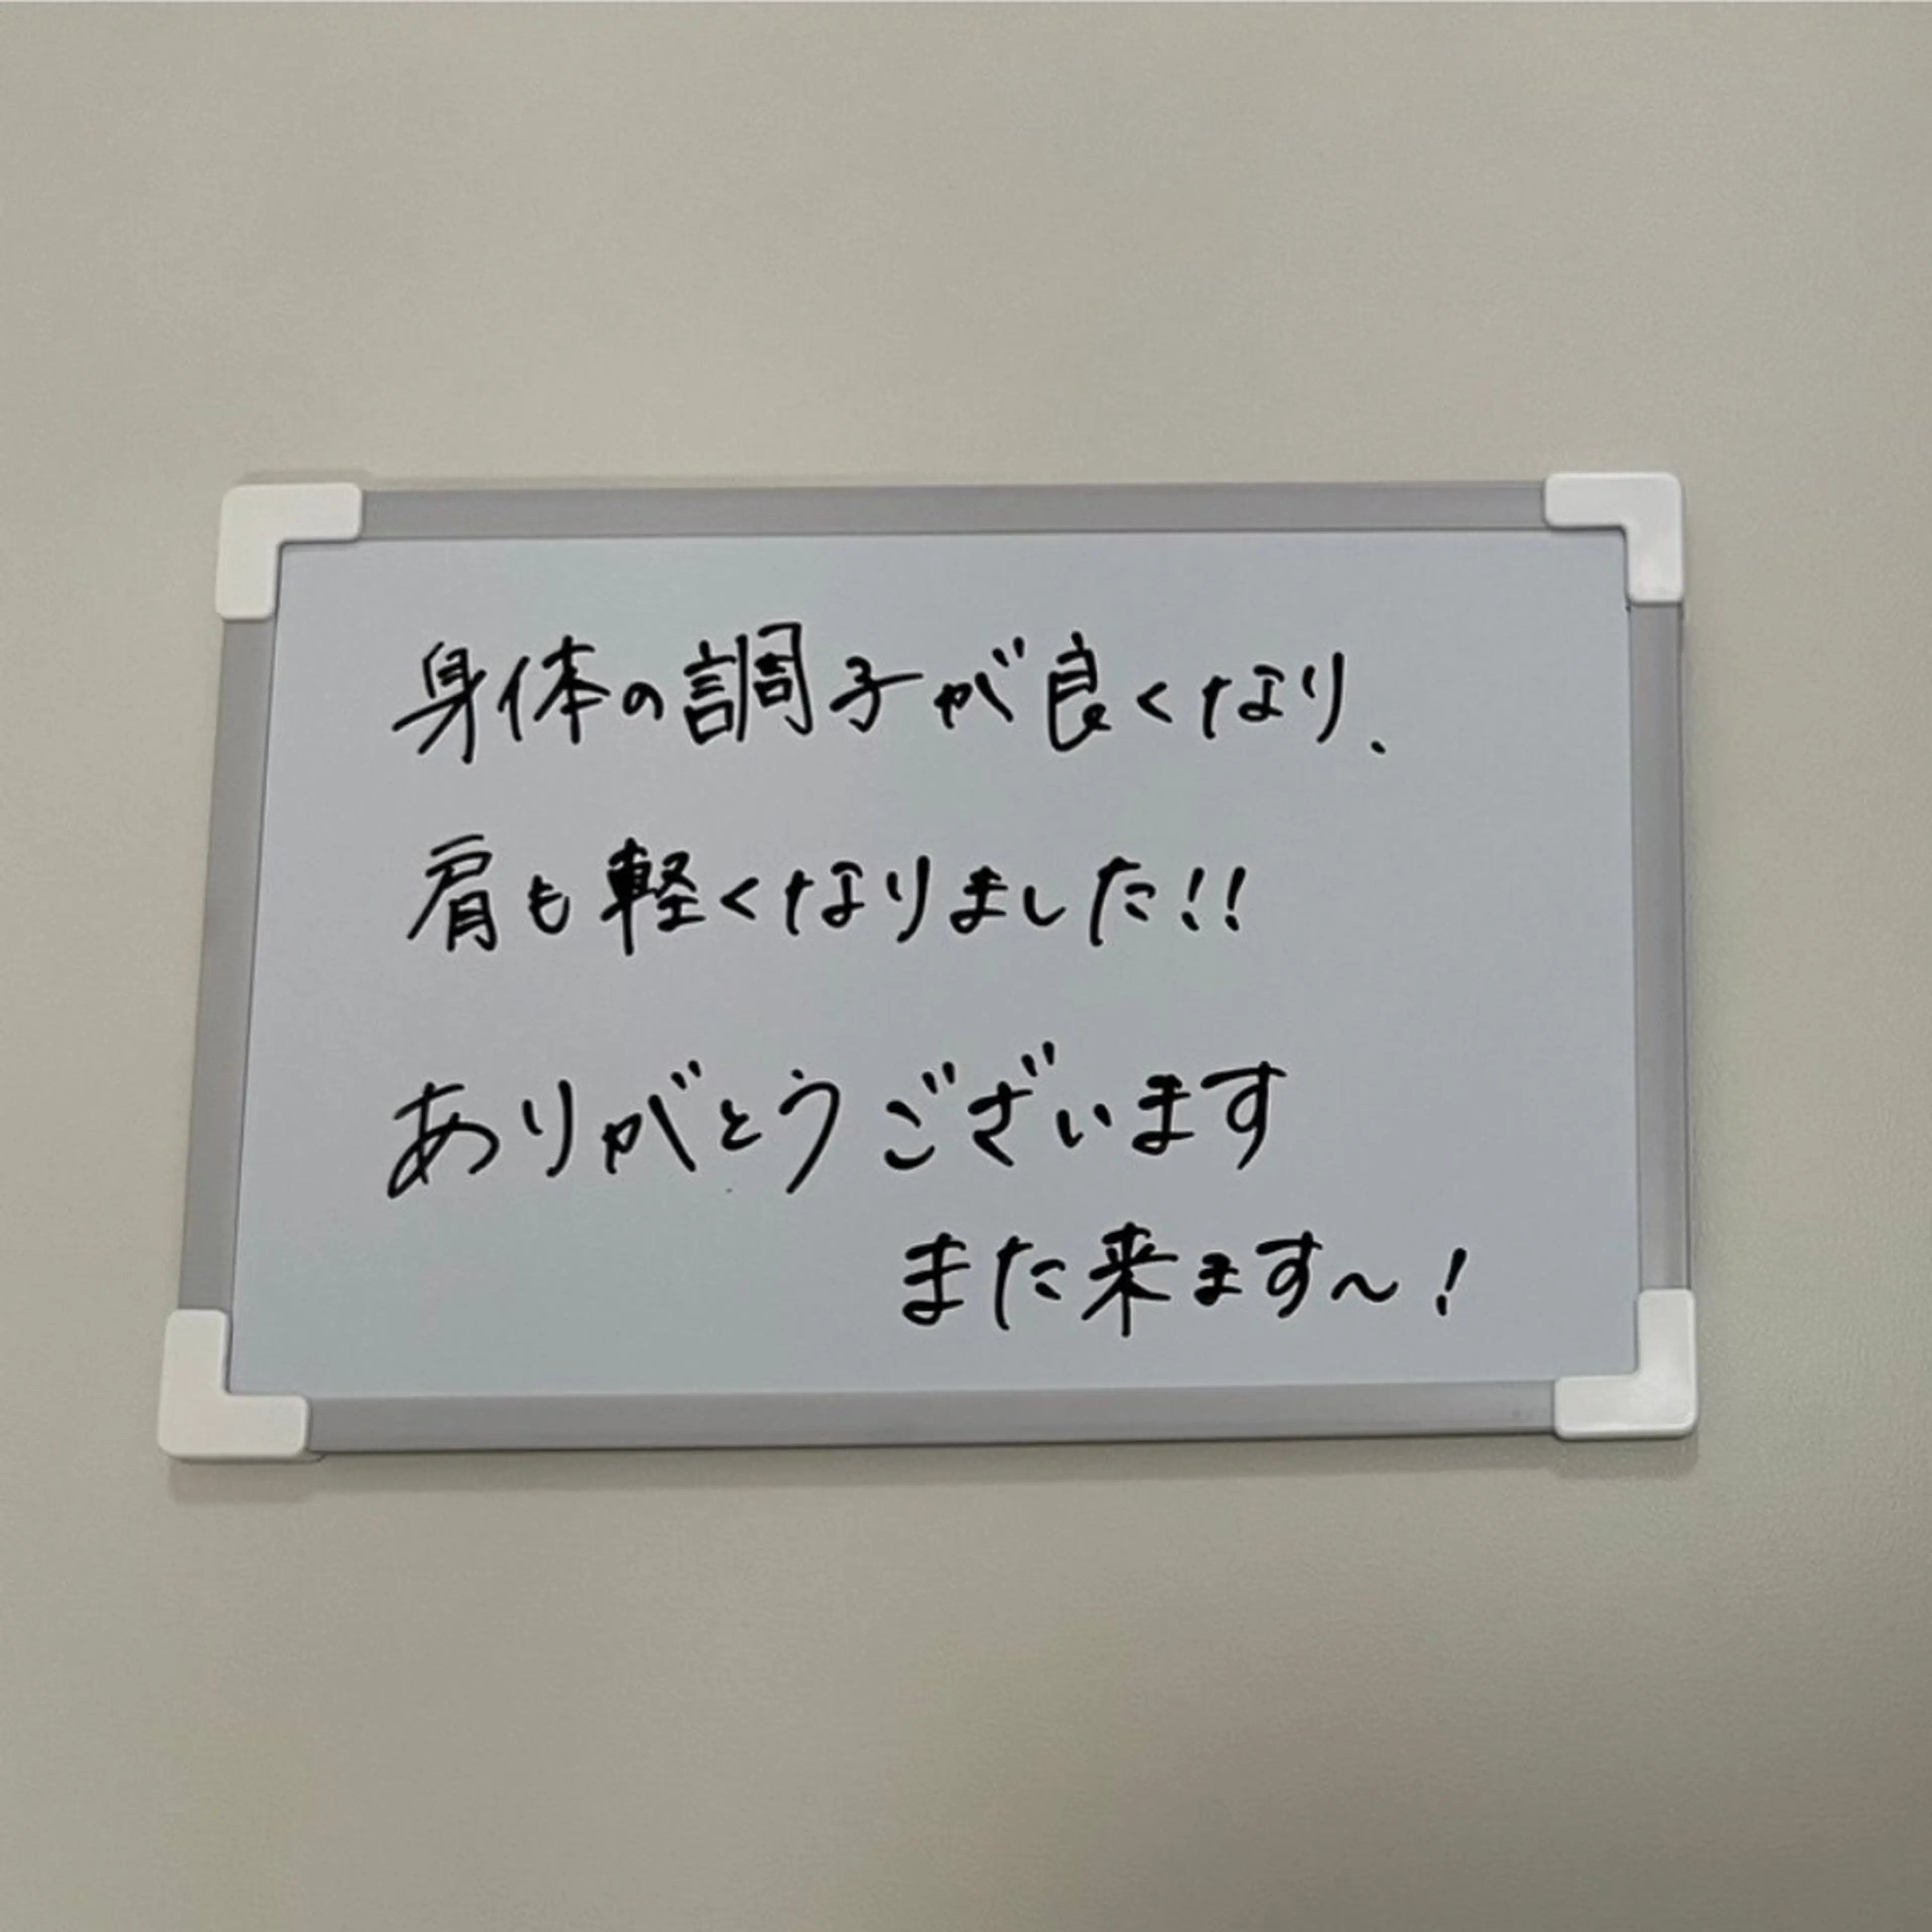 身体の調子が良くなり、
肩も軽くなりました!!
ありがとうございます
また来ます〜!